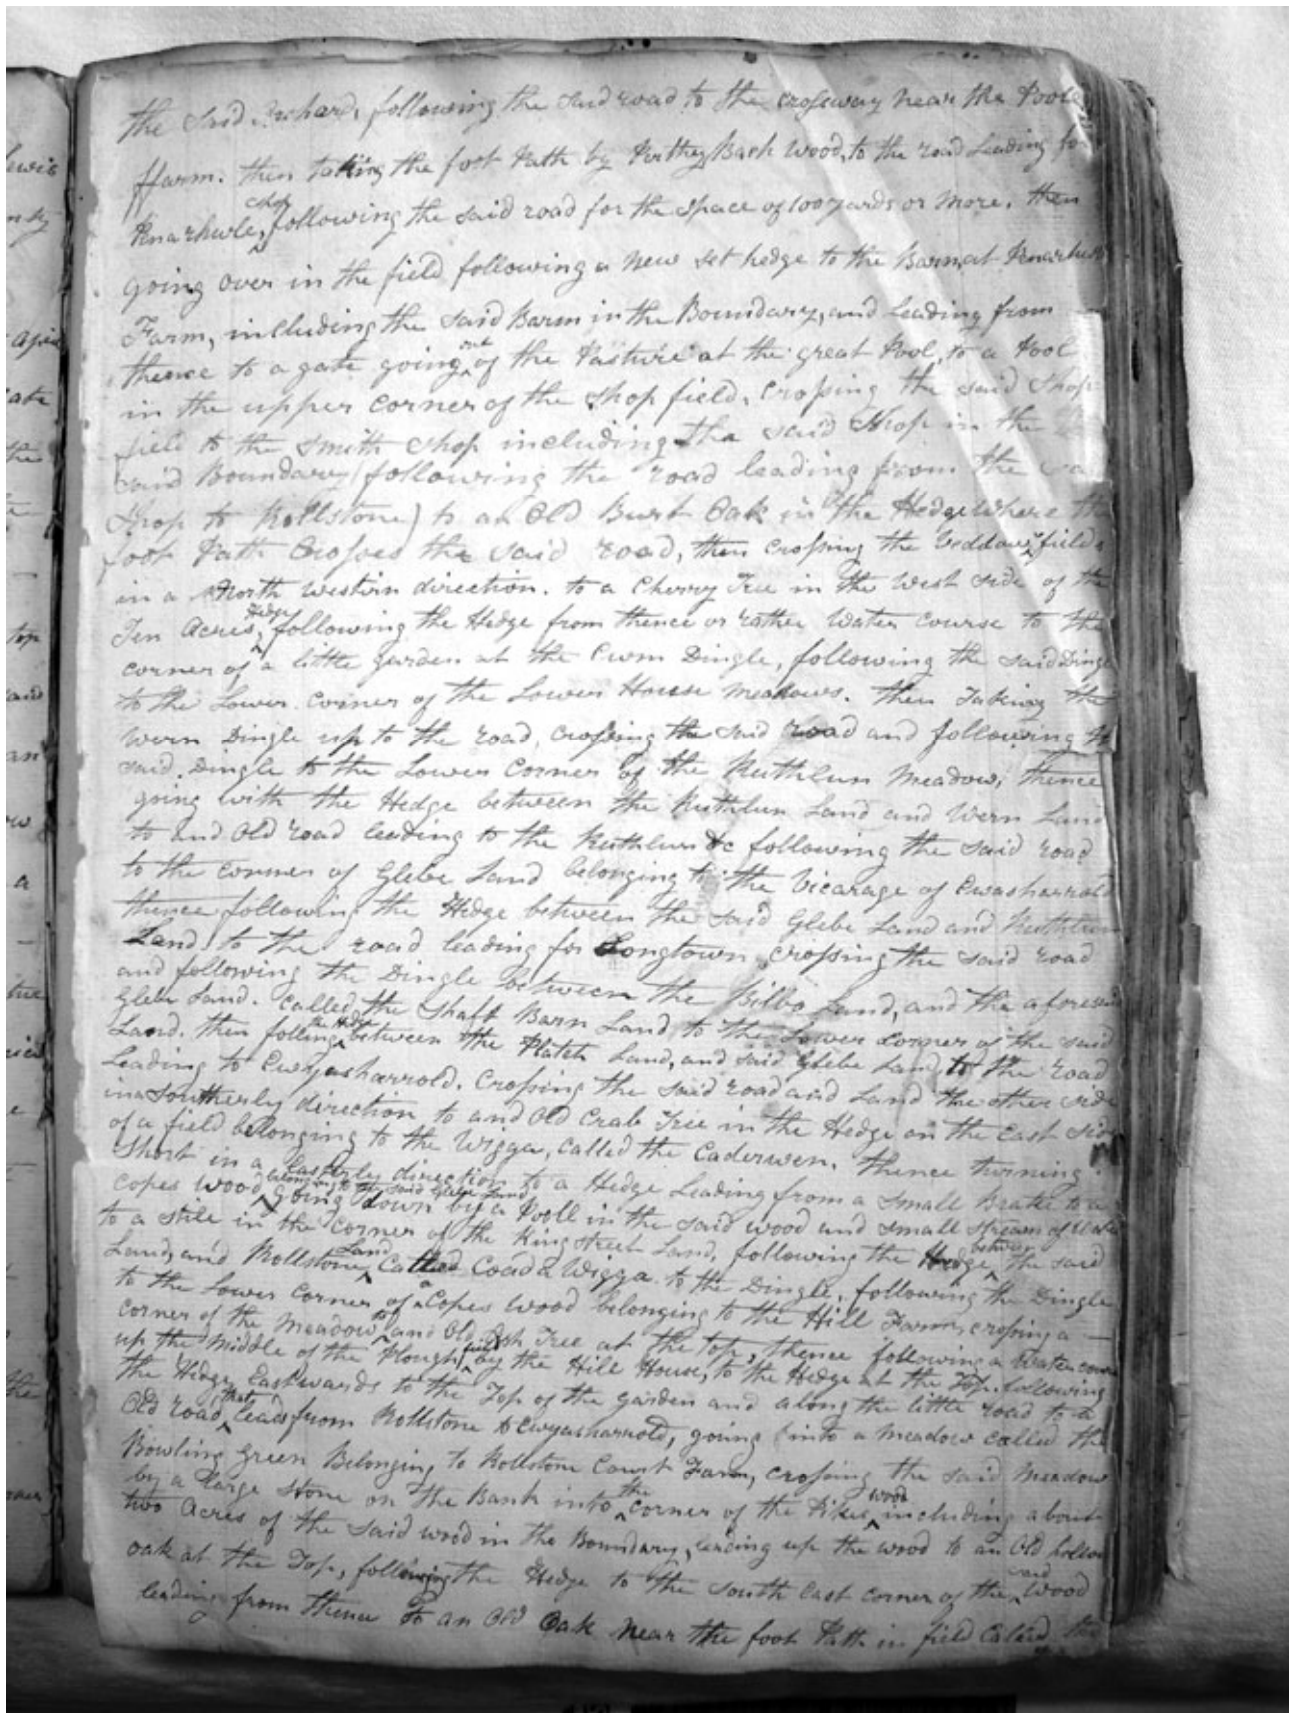 the Said Orchard, following the said road to the crossway near the Poole
ffarm. then taking the foot Path by Perthey Bach Wood, to the road Leading for
Knarhwle, following the said road for the space of 100 yards or more, then
going over in the field following a New set hedge to the Barn at
Farm, including the said Barm in the Boundary, and Leading from
thence to a gate going out of the Pasture at the great Pool, to a Pool
in the upper corner of the Shop field, Crossing the said Shop
field to the Smith Shop including the said Shop in the
said Boundary (following the road leading from the
Shop to Rollstone) to an Old Burst Oak in the Hedge where the
foot Path Crosses the said road, then Crossing the field
in a North Western direction. to a Cherry Tree in the West side of the
Ten Acres, Hedge following the Hedge from thence or rather Water Course to the
corner of a little garden at the Cwm Dingle, following the said Dingle
to the Lower Corner of the Lower House Meadows. then Taking the
Wern Dingle up to the road, crossing the said road and following the
said Dingle to the Lower Corner of the Ruthlun Meadow, thence
going with the Hedge between the Ruthlun Land and Wern Land
to and Old road leading to the Ruthlun &c following the said road
to the corner of Glebe Land belonging to the Vicarage of Ewasharrold
thence following the Hedge between the said Glebe Land and Ruthlun
Land, to the road leading for Longtown, Crossing the said road
and following the Dingle between the Bilbo Land, and the aforesaid
Glebe Land. Called the Shaft Barn Land, to the Lower Corner of the said
Land. then folling the Hedge between the Platch Land, and said Glebe Land, to the road
Leading to Ewyasharrold. Crossing the said road and Land the other side
in a Southerly direction to and Old Crab Tree in the Hedge on the East Side
of a field belonging to the Wigga, called the Caderwen. thence turning
Short in a Easterly direction to a Hedge Leading from a Small Brake to a
Copes Wood belonging to the said Glebe Land going down by a Pooll in the said wood and small stream of Water
to a stile in the Corner of the King street Land, following the Hedge between the said
Land, and Rollstone Land Called Coada Wigga to the Dingle, following the Dingle
to the Lower Corner of a Copes Wood belonging to the Hill Farm, crossing a
corner of the Meadow to and Old Ash Tree at the top, thence following a Water course
up the Middle of the Plough field by the Hill House, to the Hedge at the Top. following
the Hedge Eastwards to the Top of the garden and along the little road to a
Old road that leads from Rollstone to Ewyasharrold, going into a Meadow called the
Bowling Green Belonging to Rollstone Court Farm, crossing the said Meadow
by a Large Stone on the Bank into the corner of the Pikes wood including about
two Acres of the said wood in the Boundary, leading up the wood to an Old hollow
oak at the Top, following the Hedge to the South East corner of the said Wood
leading from thence to an Old Oak near the foot Path in field Called the